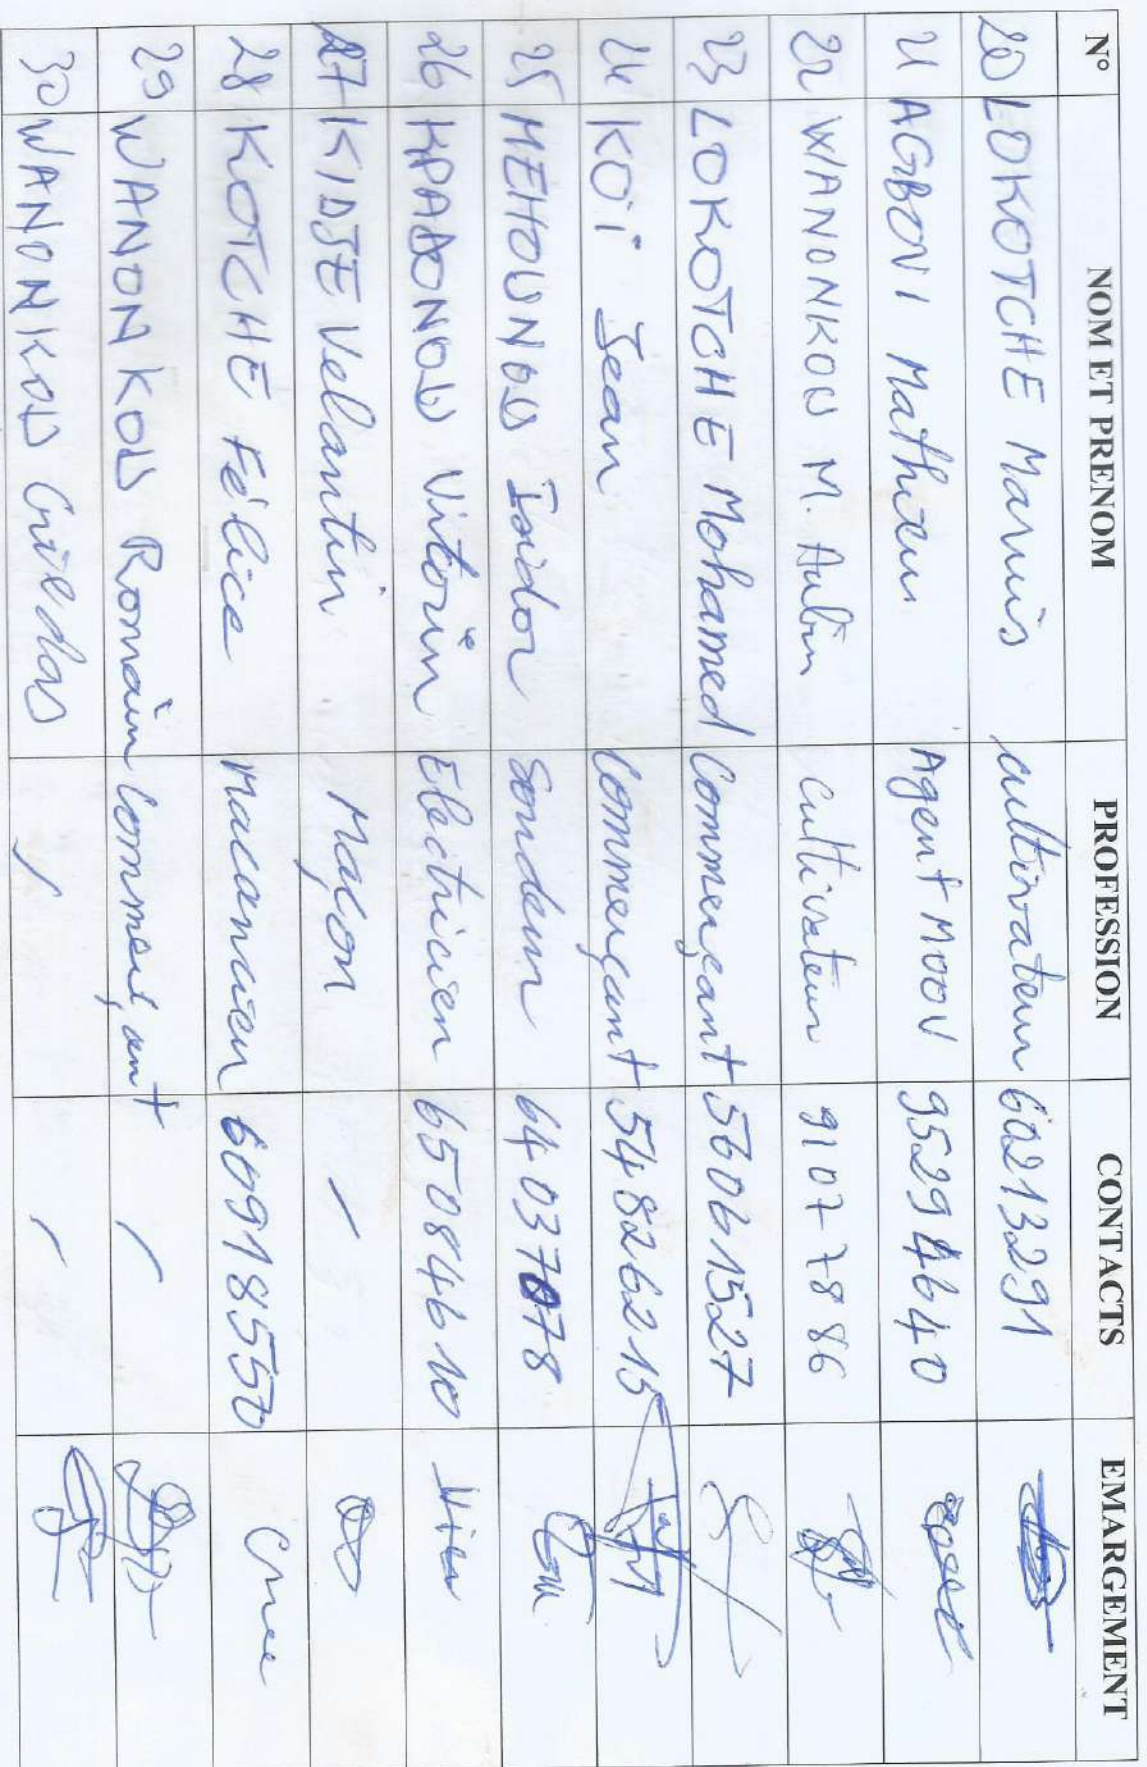 N° NOM ET PRENOM PROFESSION CONTACTS EMARGEMENT
20 LOKOTCHE Marius cultivateur 60213291
21 AGBOVI Mathieu Agent Moov 95294640
22 WANONKOU M. Aubin Cultivateur 91077886
23 LOKOTCHE Mohamed Commerçant 56061527
24 KOÏ Jean Commerçant 54826215
25 MEHOUNOU Isidor Soudeur 64037078
26 KPADONOU Vitorin Electricien 65084610
27 KIDJE Velantin Maçon /
28 KOTCHE Félice Macancien 60918550
29 WANONKOU Romain Commerçant /
30 WANONKOU Gildas / /